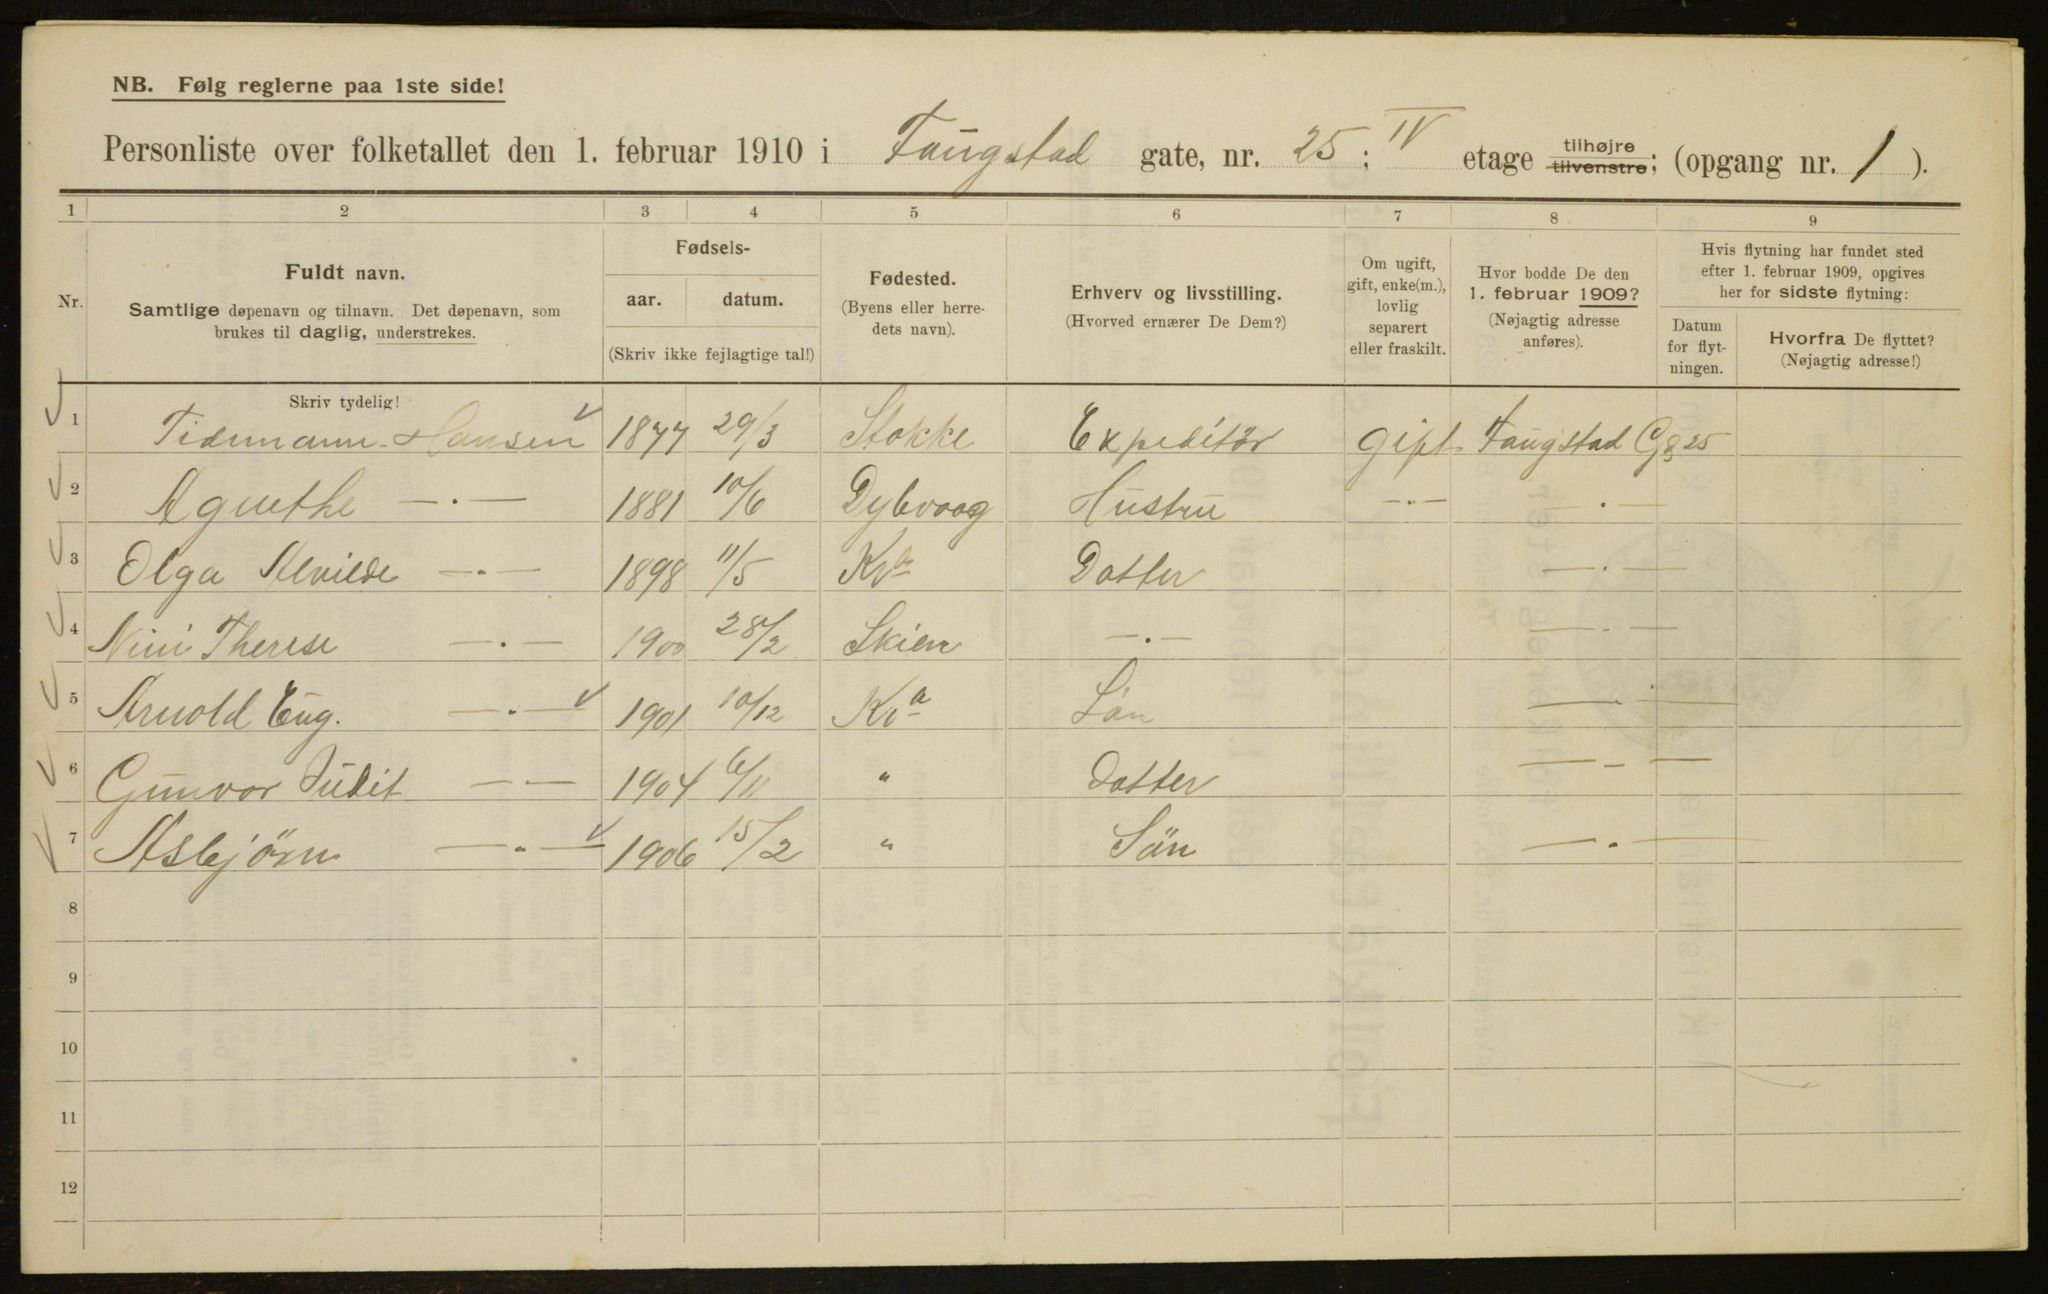 NB. Følg reglerne paa 1ste side!
Personliste over folketallet den 1. februar 1910 i Faugstad gate, nr. 25; IV etage tilhøjre tilvenstre; (opgang nr. 1).
1 2 3 4 5 6 7 8 9
Nr. Fuldt navn. Samtlige døpenavn og tilnavn. Det døpenavn, som brukes til daglig, understrekes.
Fødsels- aar. datum. (Skriv ikke fejlagtige tal!)
Fødested. (Byens eller herredets navn).
Erhverv og livsstilling. (Hvorved ernærer De Dem?)
Om ugift, gift, enke(m.), lovlig separert eller fraskilt.
Hvor bodde De den 1. februar 1909? (Nøjagtig adresse anføres).
Hvis flytning har fundet sted efter 1. februar 1909, opgives her for sidste flytning:
Datum for flytningen. Hvorfra De flyttet? (Nøjagtig adresse!)
Skriv tydelig!
1 Tidemann Hansen 1877 29/3 Stokke Expeditör gift Faugstad Gd 25
2 Agnethe —·— 1881 10/6 Dybvaag Hustru —·— —·—
3 Olga Alvilde —·— 1898 11/5 Kra Datter —·—
4 Nini Therese —·— 1900 28/2 Skien —·— —·—
5 Arnold Eug. —·— 1901 10/12 Kra Sön —·—
6 Gunvor Judit —·— 1904 6/11 " Datter —·—
7 Asbjörn —·— 1906 15/2 " Sön —·—
8
9
10
11
12